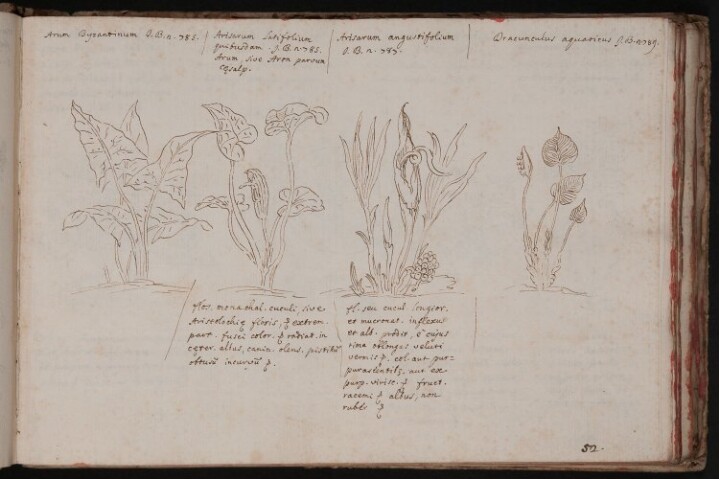 Arum Byzantinum J. B. 2. 785.
Arisarum latifolium
quibusdam. J. B. 2. 785.
Arum, sive Aron parvum
Cęsalp.
Arisarum angustifolium
J. B. 2. 787.
Dracunculus aquaticus J. B. 2. 789.
flos, monachal. cuculi, sive
Aristolochię floris, extrem.
part. fusci color.
cęter. albus, canin. olens, pistillũ
obtusũ incurvũ
fl. seu cucul. longior,
et mucronat. inflexus
et alb. prodit, è cujus
rima oblongus veluti
vermis col. aut pur-
purascentis, aut ex
purp. virisc. fruct.
racemi albus, non
rubês
52.